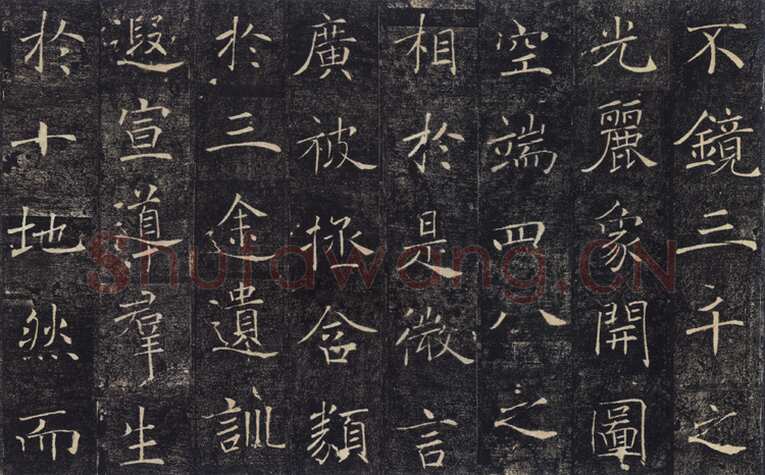 不鏡三千之
光麗象開圖
空端四八之
相於是微言
廣被拯含類
於三途遺訓
遐宣導羣生
於十地然而
Shufawang.CN